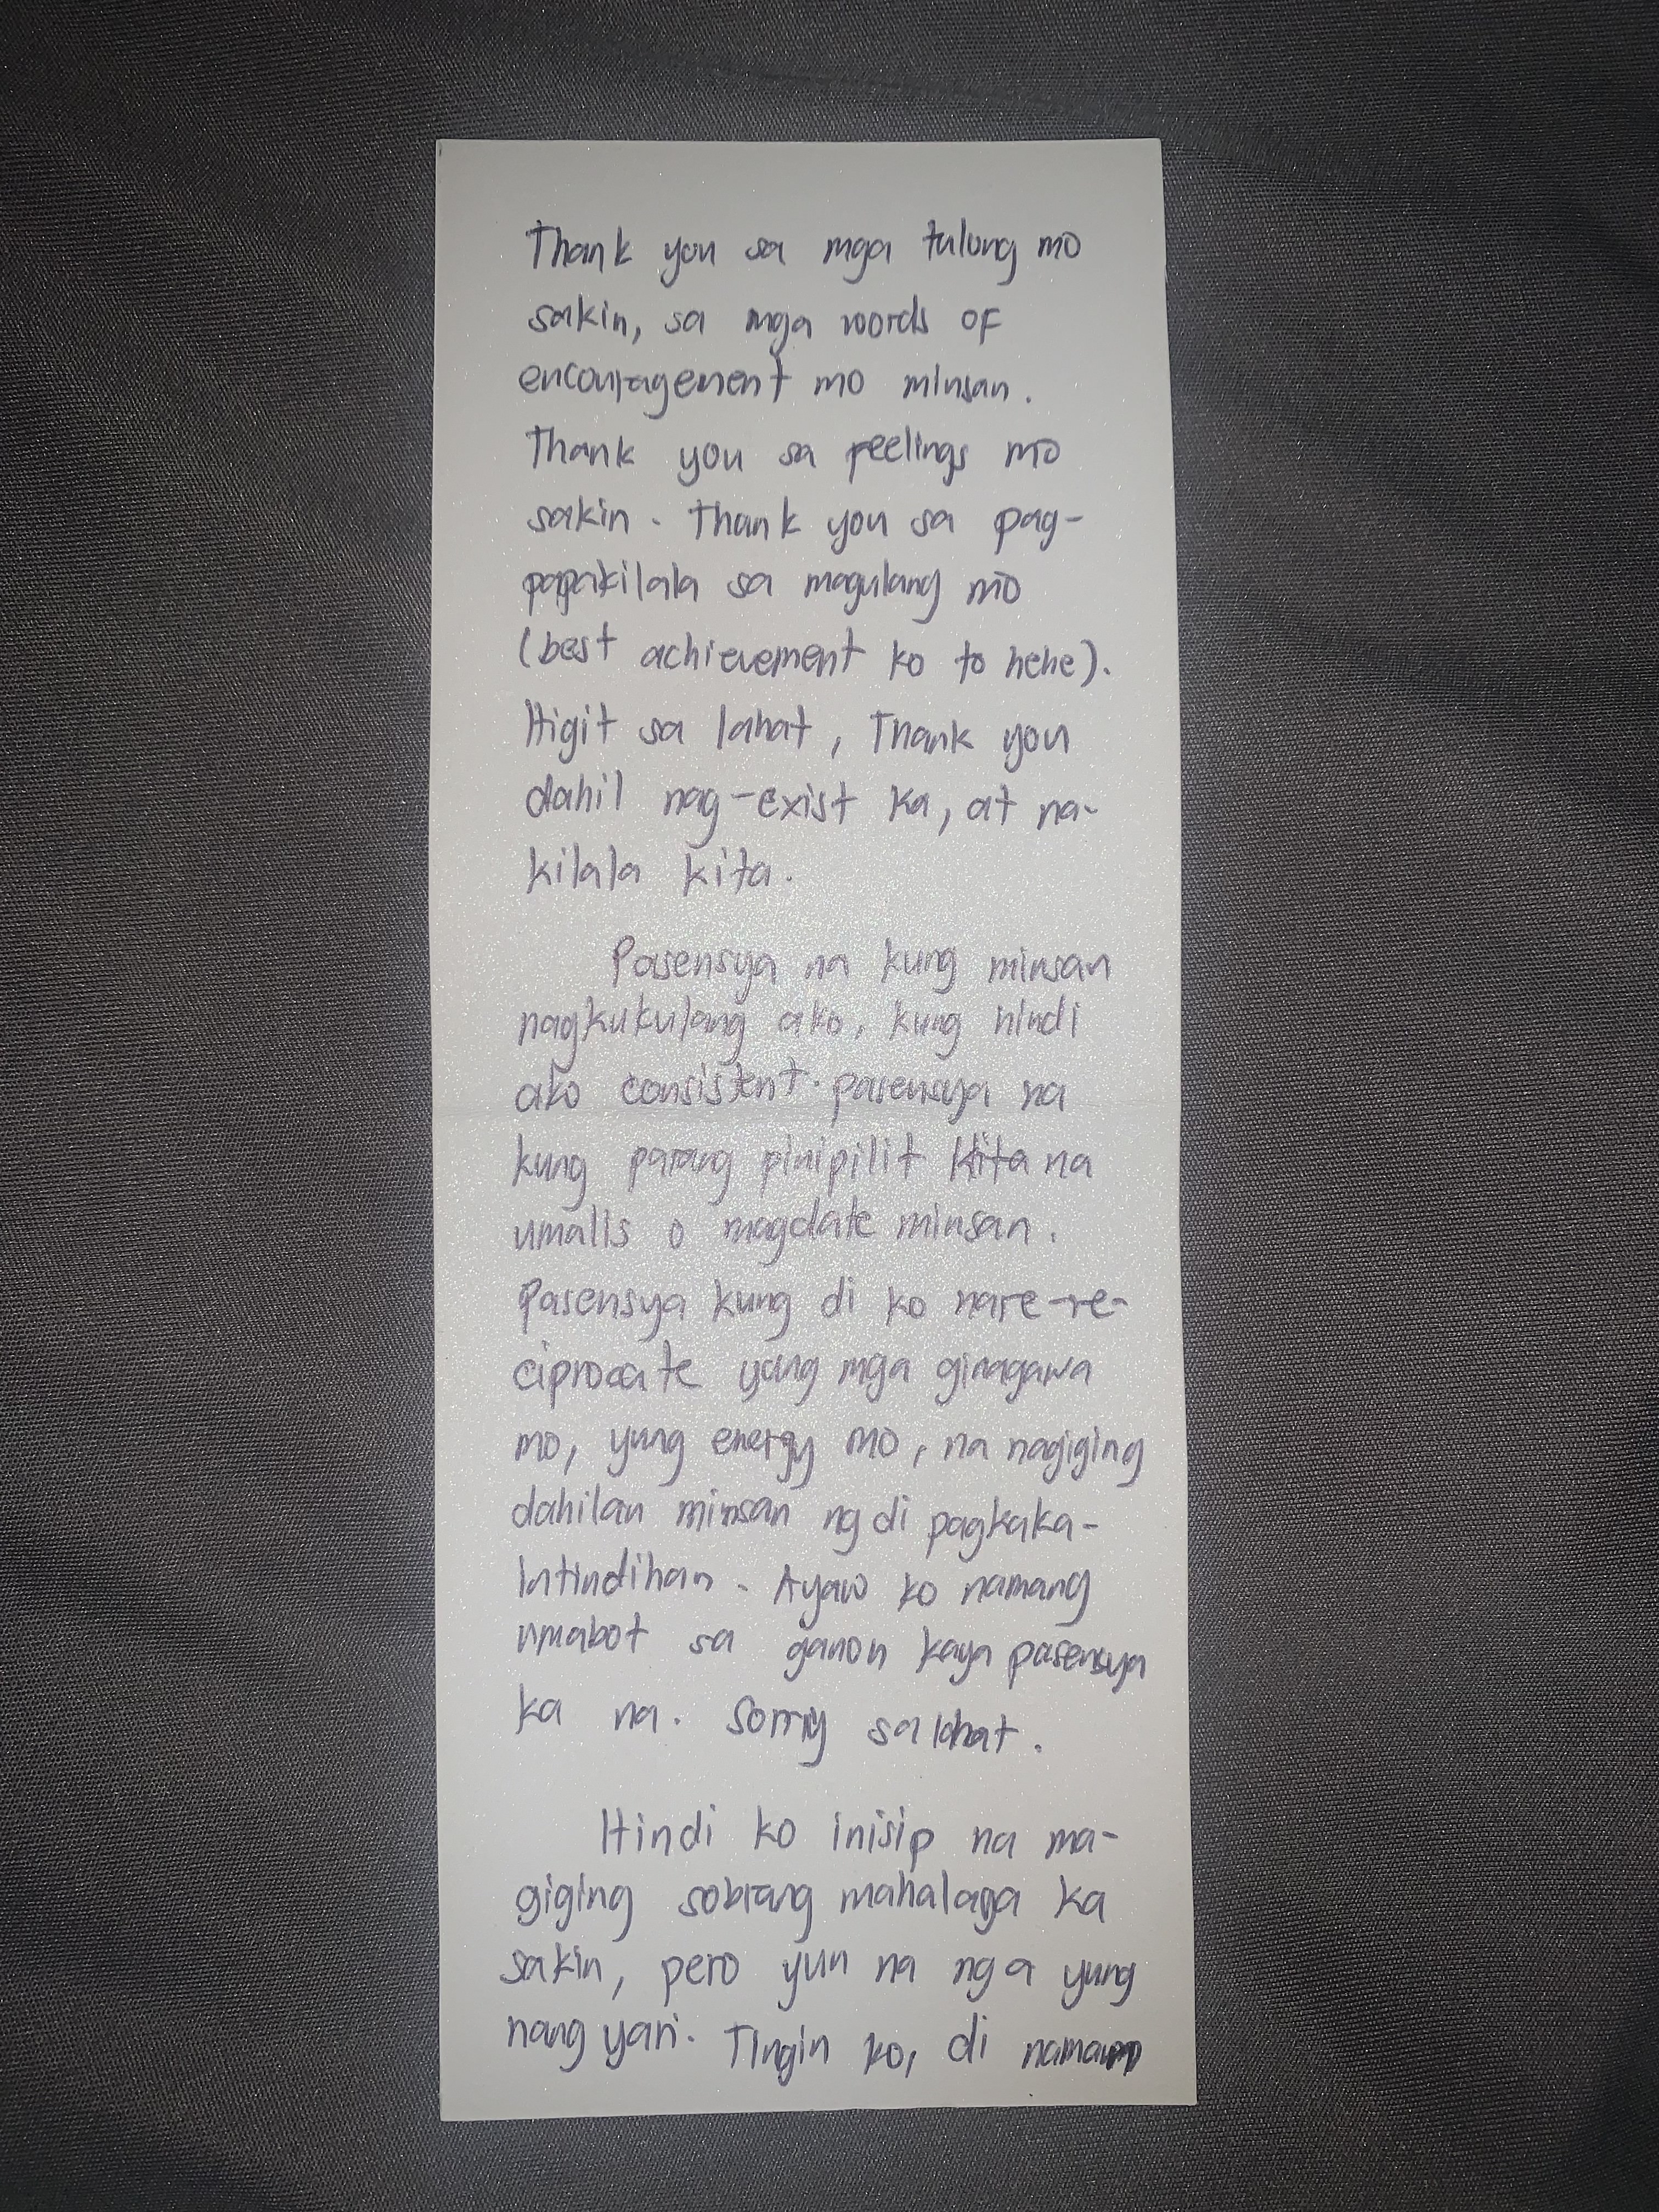 Thank you sa mga tulong mo
sakin, sa mga words of
encouragement mo minsan.
Thank you sa feelings mo
sakin. Thank you sa pag-
papakilala sa magulang mo
(best achievement ko to hehe).
Higit sa lahat, Thank you
dahil nag-exist ka, at na-
kilala kita.
Pasensya na kung minsan
nagkukulang ako, kung hindi
ako consistent. pasensya na
kung parang pinipilit kita na
umalis o magdate minsan.
Pasensya kung di ko nare-re-
ciprocate yung mga ginagawa
mo, yung energy mo, na nagiging
dahilan minsan ng di pagkaka-
intindihan. Ayaw ko namang
umabot sa ganon kaya pasensya
ka na. Sorry sa lahat.
Hindi ko inisip na ma-
giging sobrang mahalaga ka
sakin, pero yun na nga yung
nangyari. Tingin ko, di naman